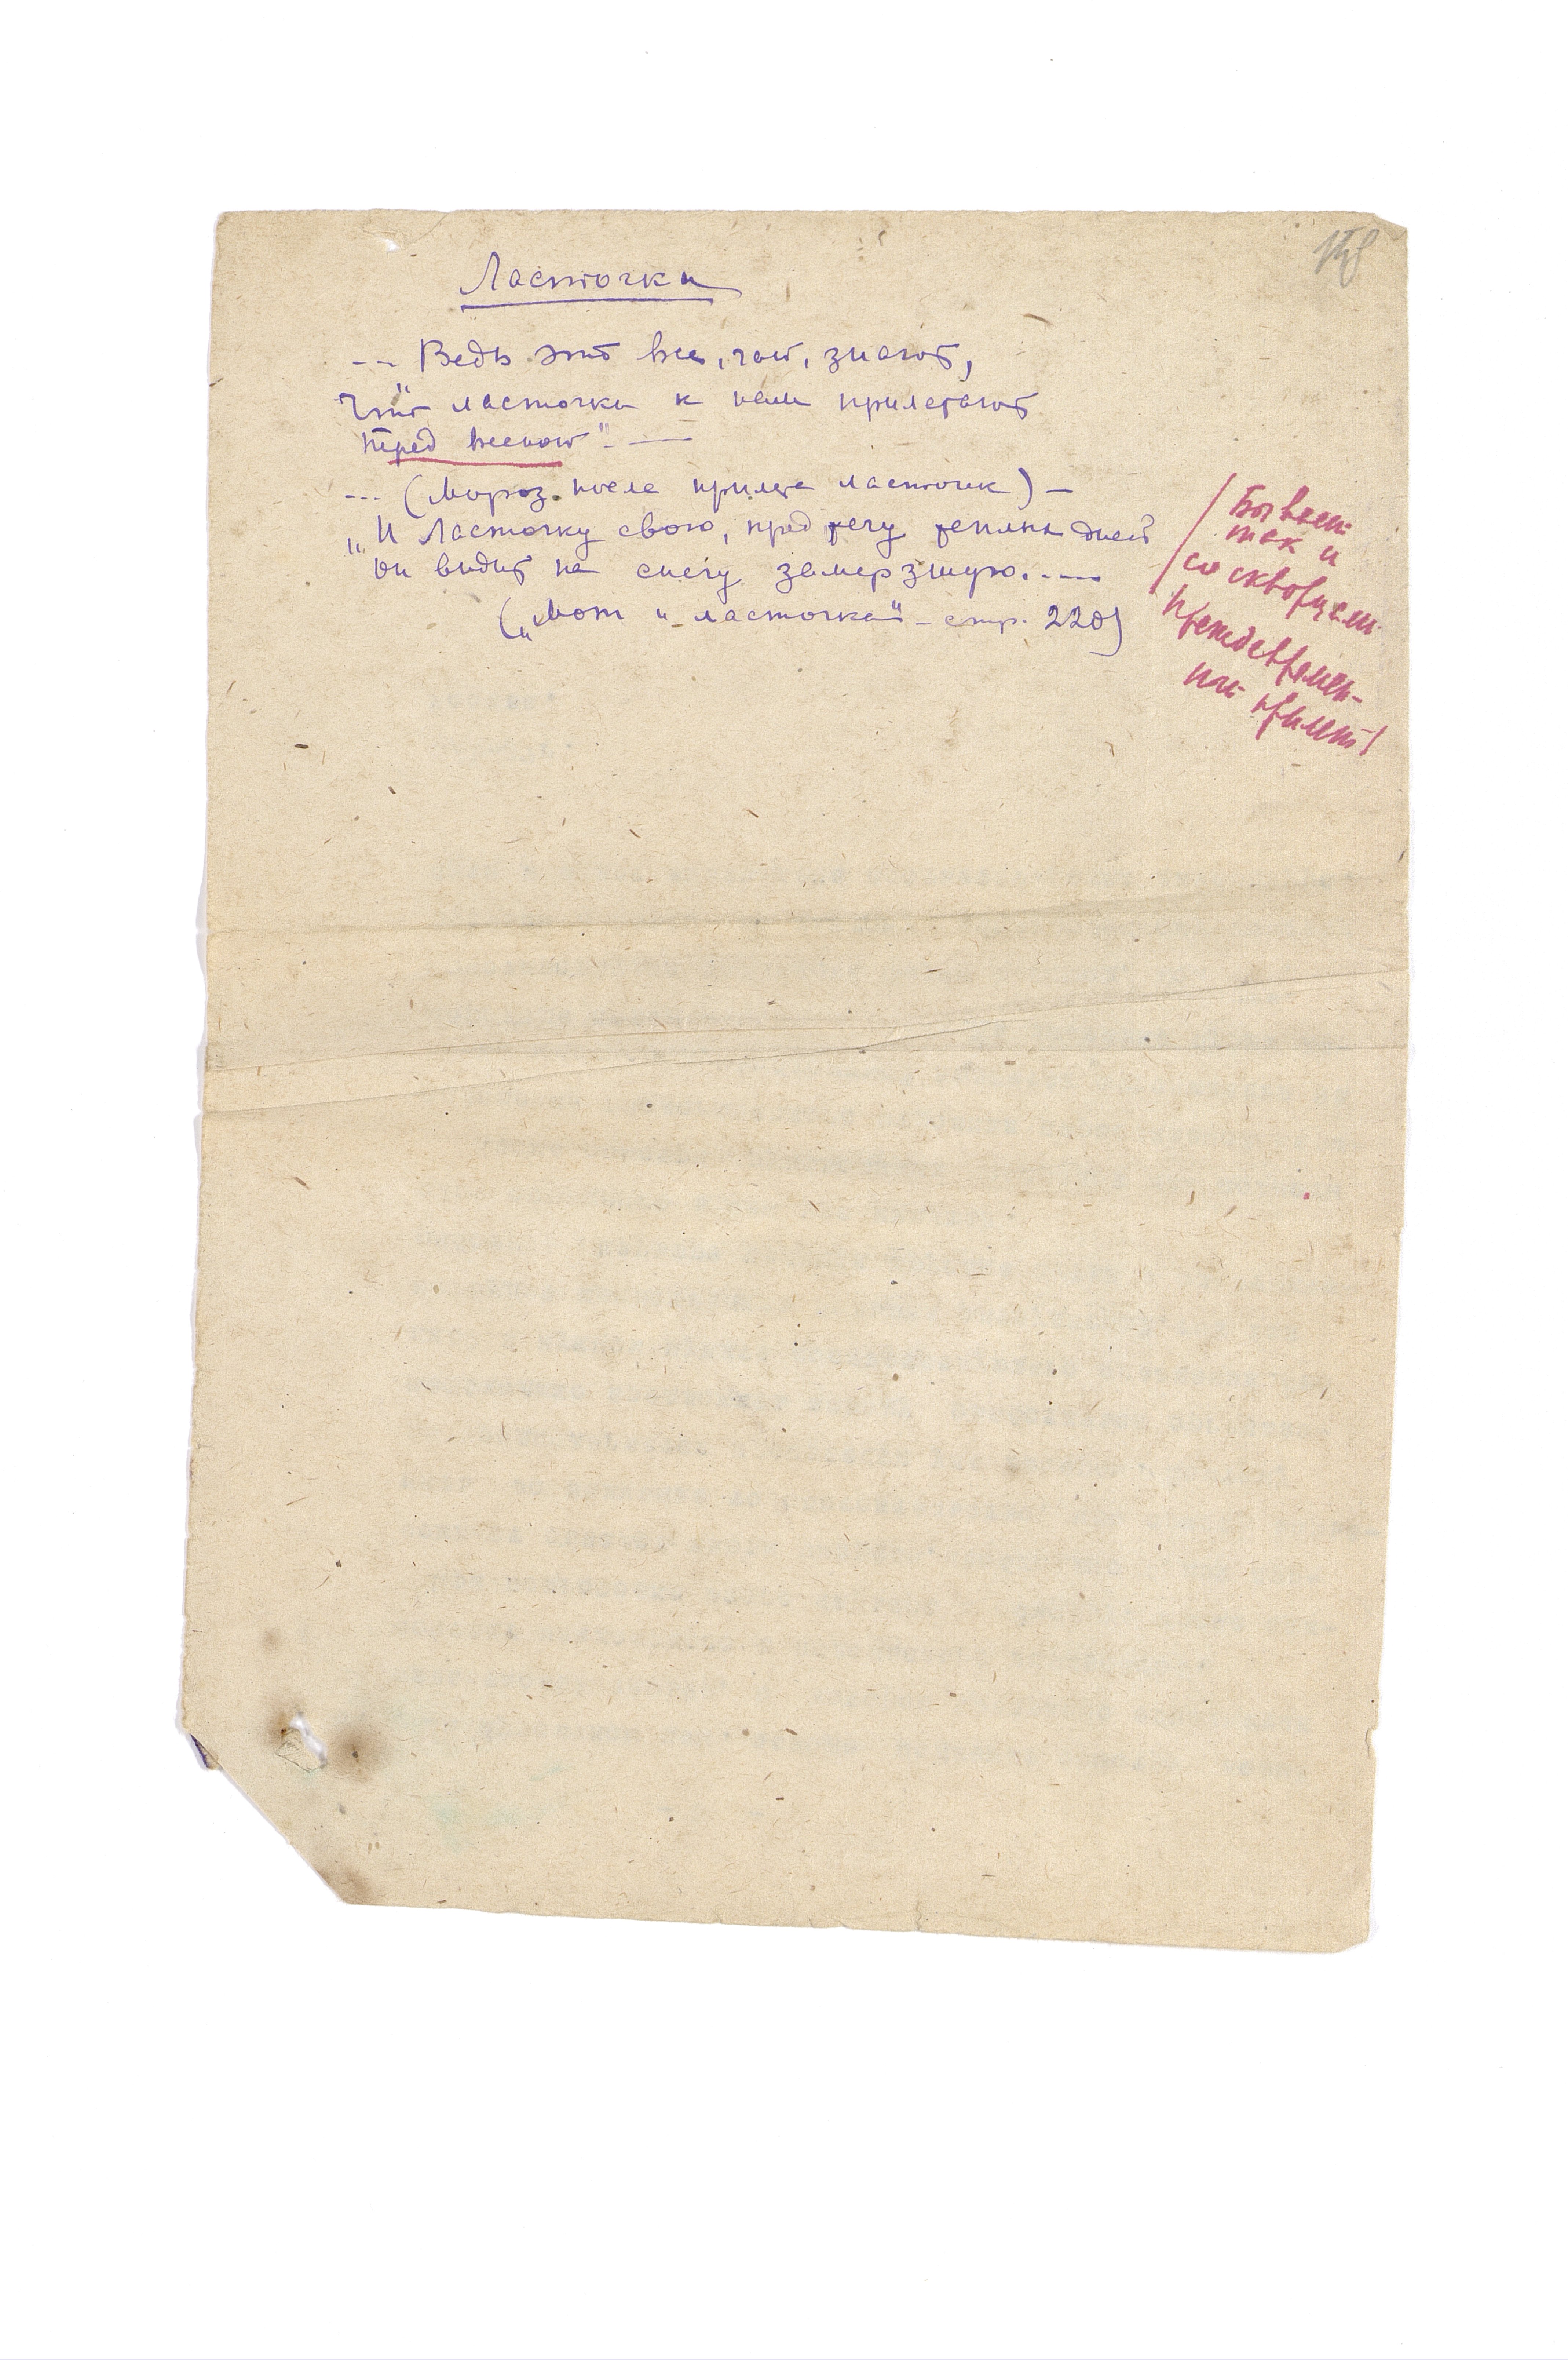 Ласточки
--- Ведь это все, чай, знают,
Что ласточки к нам прилетают
перед весною" - —
--- (Мороз после прилета ласточек) —
„И Ласточку свою, предтечу теплых дней
он видит на снегу замерзшую. . — —
(„Мот и ласточка" - стр. 220)
/ Бывает
так и
со скворцами
преждевремен-
ный прилет /